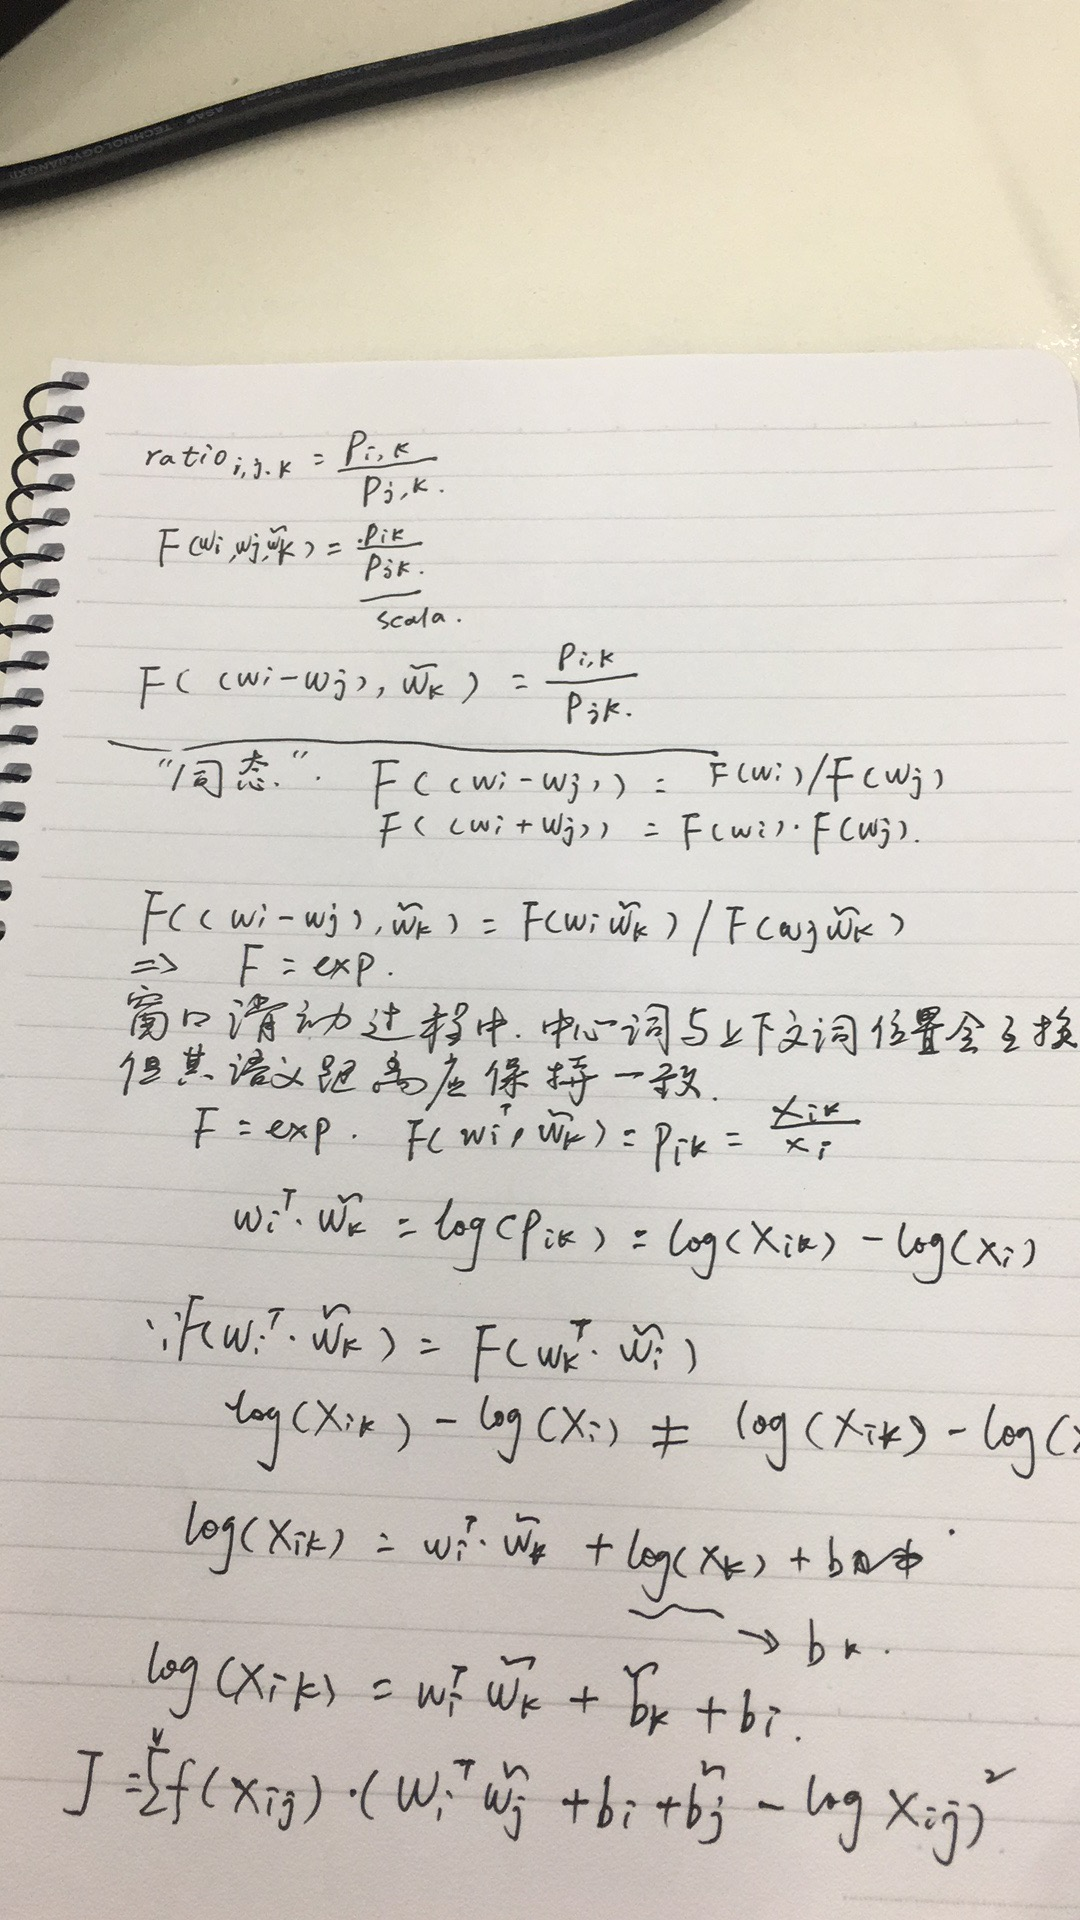 ASAP TECHNOLOGY(JIANGXI
ratio i,j,k = Pi,k / Pj,k.
F(wi,wj,w̃k) = Pik / Pjk.
scala.
F((wi-wj), w̃k) = Pi,k / Pjk.
"同态". F((wi-wj)) = F(wi)/F(wj)
F((wi+wj)) = F(wi)·F(wj).
F((wi-wj),w̃k) = F(wi w̃k) / F(wj w̃k)
=> F = exp.
窗口滑动过程中.中心词与上下文词位置会互换
但其语义距离应保持一致.
F = exp. F(wiᵀ, w̃k) = Pik = Xik / Xi
wiᵀ·w̃k = log(Pik) = log(Xik) - log(Xi)
∵F(wiᵀ·w̃k) = F(wkᵀ·w̃i)
log(Xik) - log(Xi) ≠ log(Xik) - log(X
log(Xik) = wiᵀ·w̃k + log(Xk) +
→ bk.
log(Xik) = wiᵀ w̃k + b̃k + bi.
J = Σ f(Xij)·(Wiᵀ w̃j + bi + b̃j - log Xij)²